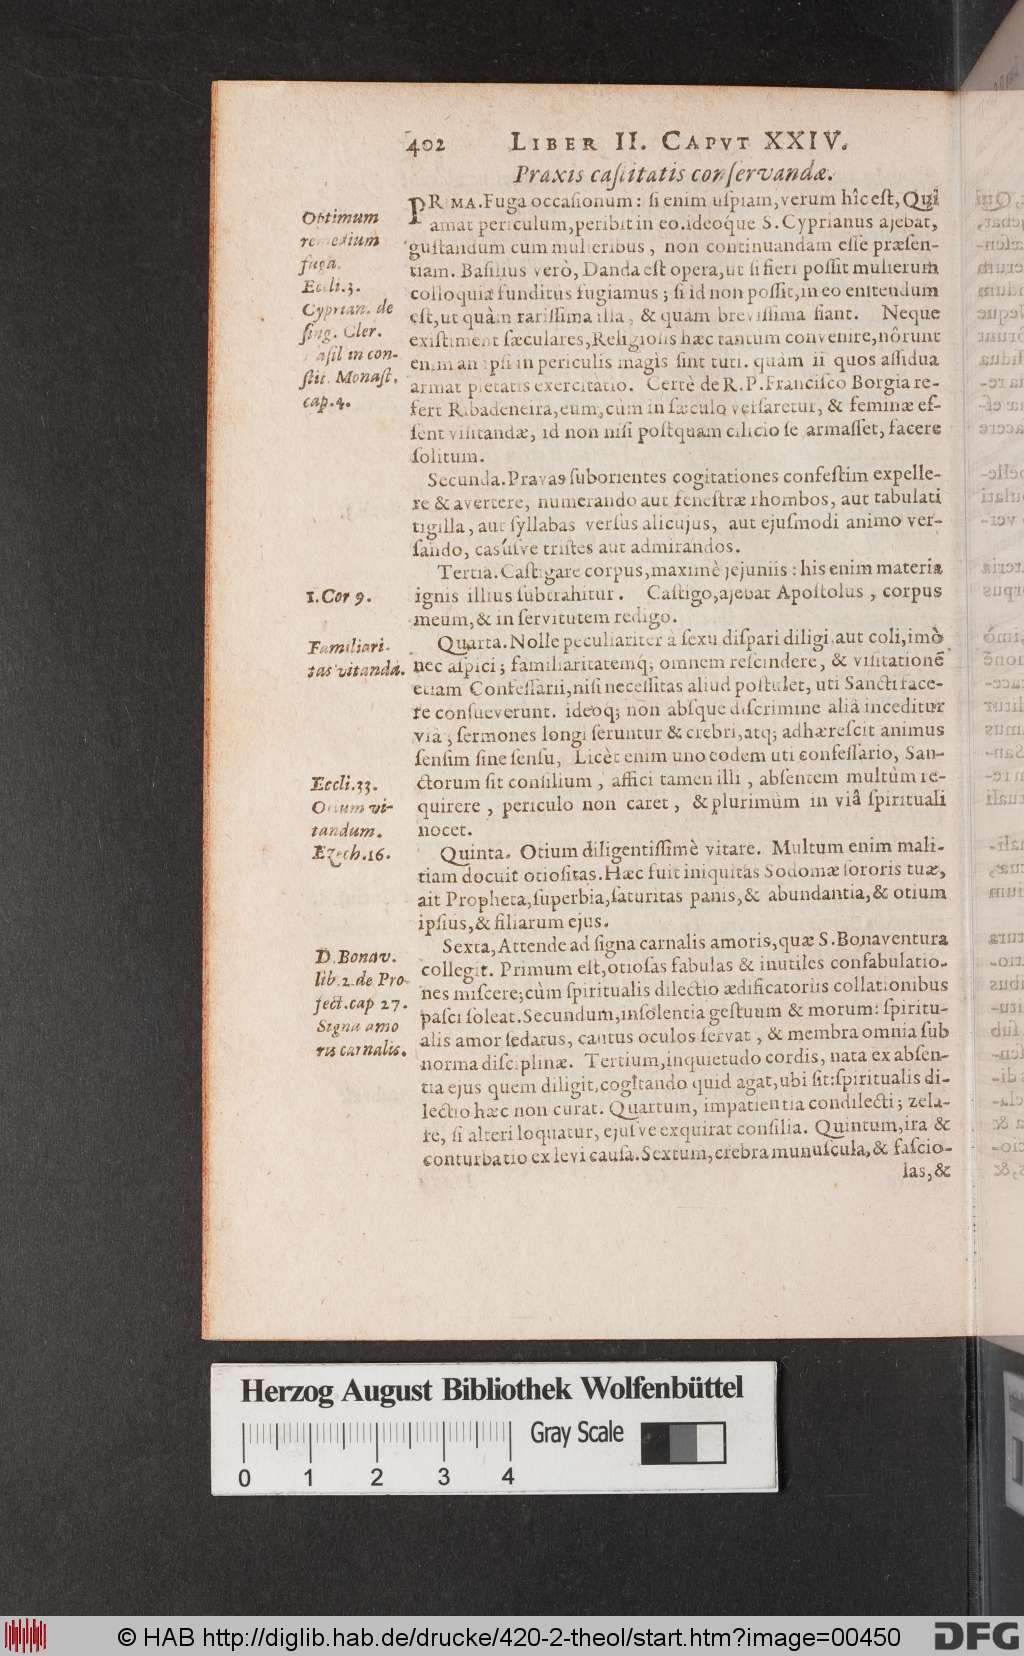 402 LIBER II. CAPVT XXIV.
Praxis caſtitatis conſervandæ.
PRIMA. Fuga occaſionum: ſi enim uſpiam, verum hîc eſt, Qui
amat periculum, peribit in eo. ideoque S. Cyprianus ajebat,
guſtandum cum mulieribus, non continuandam eſſe præſen-
tiam. Baſilius verò, Danda eſt opera, ut ſi fieri poſſit mulierum
colloquia funditùs fugiamus; ſi id non poſſit, in eo enitendum
eſt, ut quàm rariſſima illa, & quàm breviſſima fiant. Neque
exiſtiment ſæculares, Religioſis hæc tantum convenire, nôrunt
enim an ipſi in periculis magis ſint tuti. quàm ii quos aſſidua
armat pietatis exercitatio. Certè de R. P. Franciſco Borgia re-
fert Ribadeneira, eum, cùm in ſæculo verſaretur, & feminæ eſ-
ſent viſitandæ, id non niſi poſtquam cilicio ſe armaſſet, facere
ſolitum.
Secunda. Pravas ſuborientes cogitationes confeſtim expelle-
re & avertere, numerando aut feneſtræ rhombos, aut tabulati
tigilla, aut ſyllabas verſus alicujus, aut ejuſmodi animo ver-
ſando, casúſve triſtes aut admirandos.
Tertia. Caſtigare corpus, maximè jejuniis: his enim materia
ignis illius ſubtrahitur. Caſtigo, ajebat Apoſtolus, corpus
meum, & in ſervitutem redigo.
Quarta. Nolle peculiariter à ſexu diſpari diligi. aut coli, imò
nec aſpici; familiaritatemq; omnem reſcindere, & viſitationē
etiam Confeſſarii, niſi neceſſitas aliud poſtulet, uti Sancti face-
re conſueverunt. ideoq; non abſque diſcrimine aliâ inceditur
viâ; ſermones longi ſeruntur & crebri, atq; adhæreſcit animus
ſenſim ſine ſenſu, Licèt enim uno eodem uti confeſſario, San-
ctorum ſit conſilium, affici tamen illi, abſentem multùm re-
quirere, periculo non caret, & plurimùm in viâ ſpirituali
nocet.
Quinta. Otium diligentiſſimè vitare. Multum enim mali-
tiam docuit otioſitas. Hæc fuit iniquitas Sodomæ ſororis tuæ,
ait Propheta, ſuperbia, ſaturitas panis, & abundantia, & otium
ipſius, & filiarum ejus.
Sexta, Attende ad ſigna carnalis amoris, quæ S. Bonaventura
collegit. Primum eſt, otioſas fabulas & inutiles confabulatio-
nes miſcere; cùm ſpiritualis dilectio ædificatoriis collationibus
paſci ſoleat. Secundum, inſolentia geſtuum & morum: ſpiritu-
alis amor ſedatus, cautus oculos ſervat, & membra omnia ſub
norma diſciplinæ. Tertium, inquietudo cordis, nata ex abſen-
tia ejus quem diligit, cogitando quid agat, ubi ſit: ſpiritualis di-
lectio hæc non curat. Quartum, impatientia condilecti; zela-
re, ſi alteri loquatur, ejuſve exquirat conſilia. Quintum, ira &
conturbatio ex levi cauſa. Sextum, crebra munuſcula, & faſcio-
las, &
Optimum
remedium
fuga.
Eccli. 3.
Cyprian. de
ſing. Cler.
Baſil in con-
ſtit. Monaſt.
cap. 4.
1. Cor 9.
Familiari-
tas vitanda.
Eccli. 33.
Otium vi-
tandum.
Ezech. 16.
D. Bonav.
lib. 2. de Pro-
ject. cap 27.
Signa amo
ris carnalis.
Herzog August Bibliothek Wolfenbüttel
Gray Scale
0 1 2 3 4
© HAB http://diglib.hab.de/drucke/420-2-theol/start.htm?image=00450
DFG